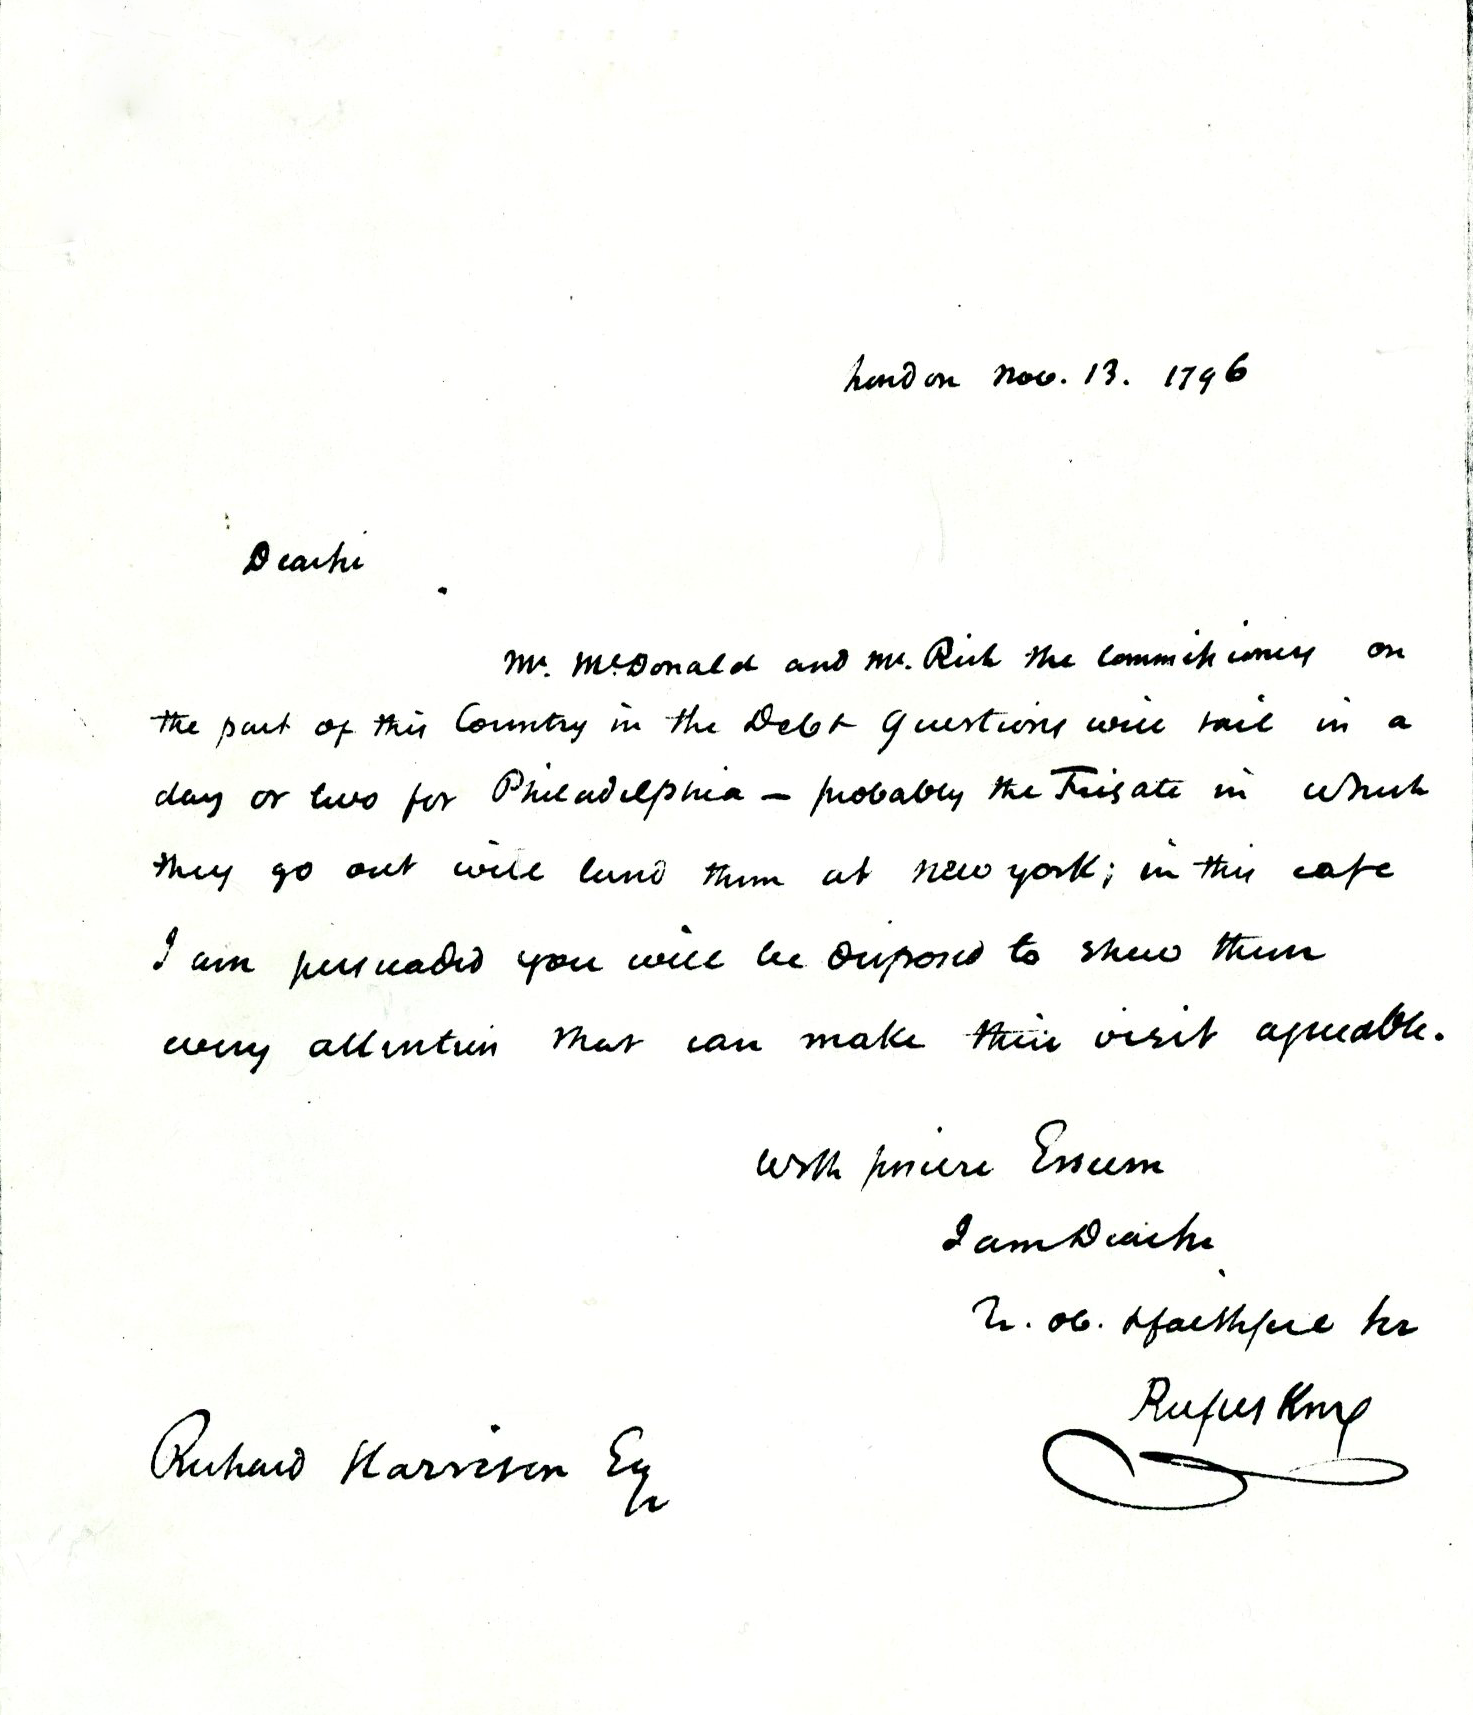 London Nov. 13. 1796
Dear Sir
Mr. McDonald and Mr. Rich the Commissioners on
the part of this Country in the Debt Questions will sail in a
day or two for Philadelphia — probably the Frigate in which
they go out will land them at New york; in this case
I am persuaded you will be disposed to shew them
every attention that can make their visit agreeable.
With sincere Esteem
I am Dear Sir
Yr. ob. & faithful Ser
Rufus King
Richard Harrison Esqr